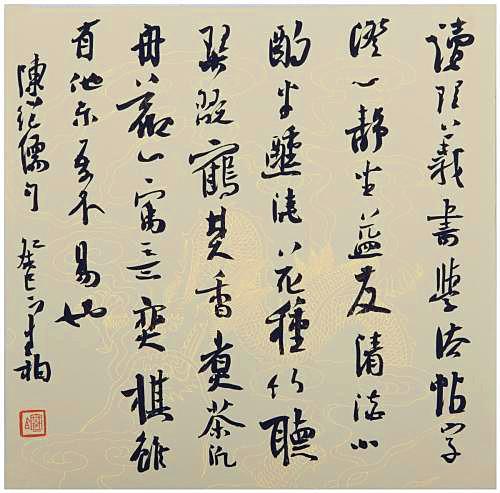 讀理義書學法帖字
澄心靜坐益友清談小
酌半醺澆花種竹聽
琴翫鶴焚香煮茶汎
舟觀山寓意奕棋雖
有他樂吾不易也
陳繼儒句 癸巳